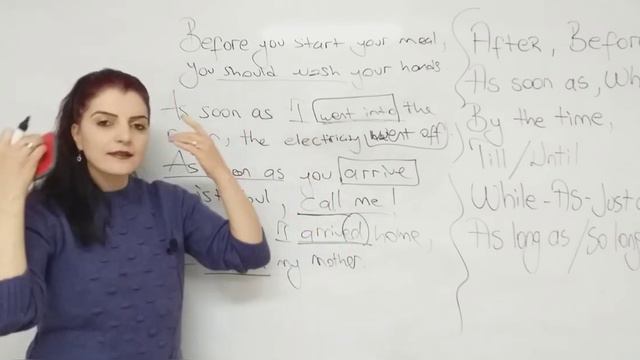 Before you start your meal,
you should wash your hands
As soon as I went into the
the electricity went off.
As soon as you arrive
call me!
I arrived home,
my mother.
After, Before
As soon as,
By the time,
Till / Until
While - As - Just
As long as / So long